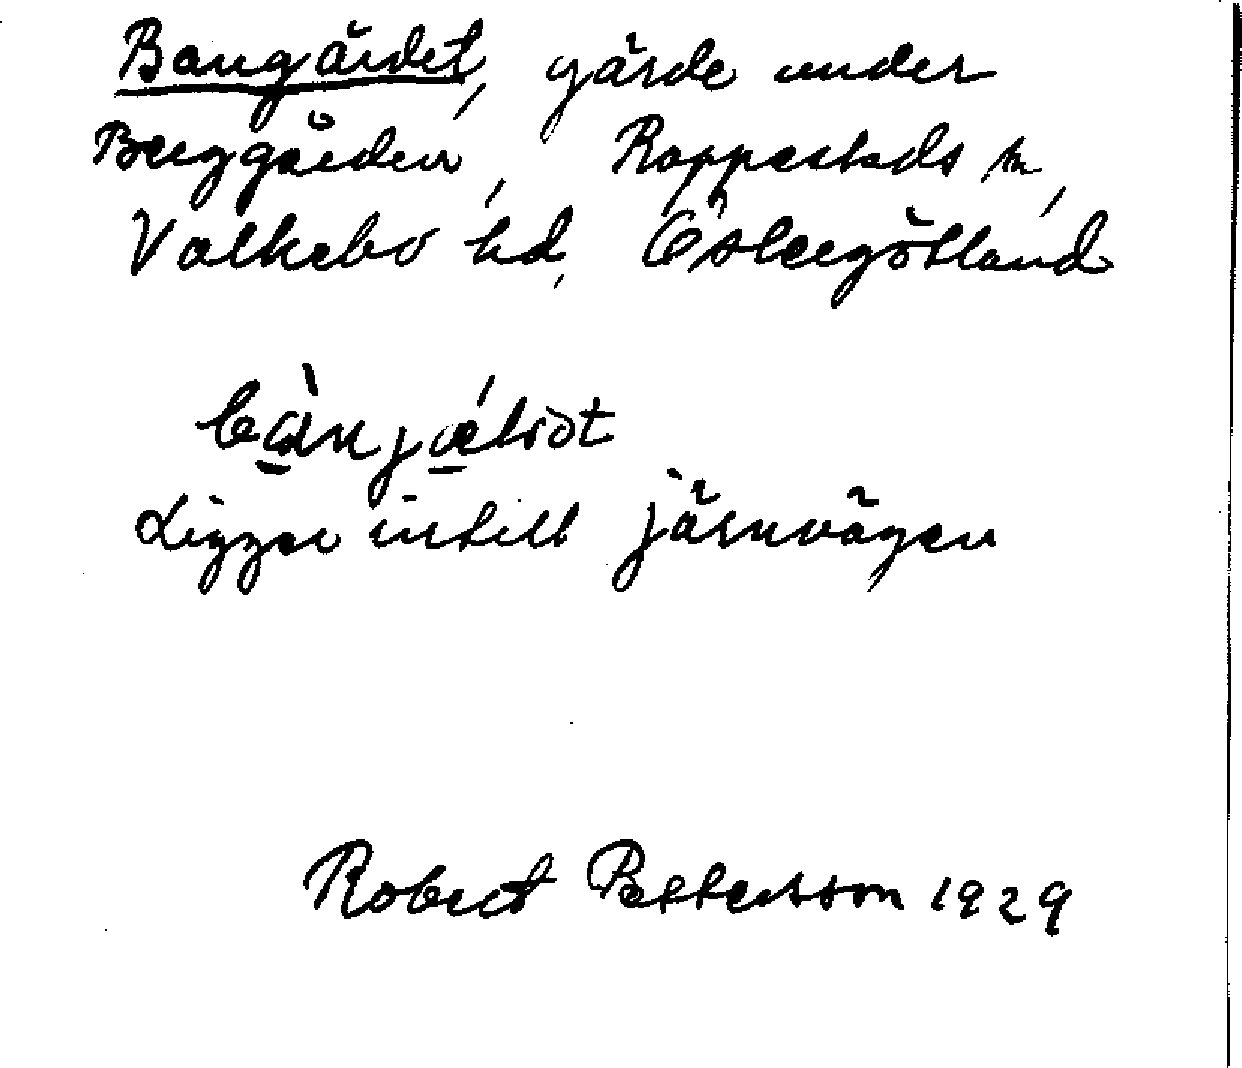 Bangärdet, gärde under
Berggården, Rappestads sn,
Valkebo hd, Östergötland
Ligger intill järnvägen
Robert Pettersson 1929